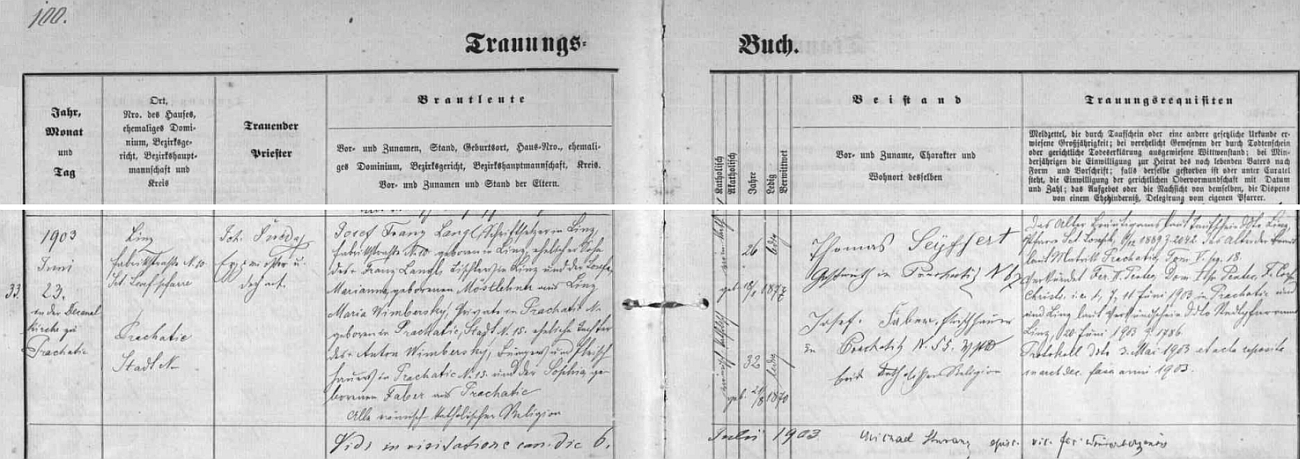 100.
Trauungs-
Buch.
Jahr,
Monat
und
Tag
Ort,
Nro. des Hauses,
ehemaliges Domi-
nium, Bezirksge-
richt, Bezirkshaupt-
mannschaft und
Kreis
Trauender
Priester
Brautleute
Vor- und Zunamen, Stand, Geburtsort, Haus-Nro., ehemali-
ges Dominium, Bezirksgericht, Bezirkshauptmannschaft, Kreis.
Vor- und Zunamen und Stand der Eltern.
Katholisch
Akatholisch
Jahre
Ledig
Verwittwet
Beistand
Vor- und Zuname, Charakter und
Wohnort desselben
Trauungsrequisiten
Meldzettel, die durch Taufschein oder eine andere gesetzliche Urkunde er-
wiesene Großjährigkeit; bei verehelicht Gewesenen der durch Todtenschein
oder gerichtliche Todeserklärung ausgewiesene Wittwenstand; bei Min-
derjährigen die Einwilligung zur Heirat des noch lebenden Vaters nach
Form und Vorschrift; falls derselbe gestorben ist oder unter Curatel
steht, die Einwilligung der gerichtlichen Obervormundschaft mit Datum
und Zahl; das Aufgebot oder die Nachsicht von demselben, die Dispens
von einem Ehehinderniß, Delegirung vom eigenen Pfarrer.
33.
1903
Juni
23.
in der Decanal
kirche zu
Prachatic
Linz
Fabrikstraße N. 10
St. Josefspfarre
Prachatic
Stadt N.
Joh.
Dechant.
Josef Franz Langl, Schriftsetzer in Linz,
Fabrikstraße N. 10 geboren in Linz, ehelicher Sohn
des Franz Langl, Tischler in Linz und der
Marianna, geborenen Möstlehner aus Linz
Maria Wimbersky, Private in Prachatic N.
geboren in Prachatic, Stadt N. 15. eheliche Tochter
des Anton Wimbersky, Bürgers und Fleisch
hauers in Prachatic N. 15. und der Sophia, ge
borenen Faber aus Prachatic
Alle römisch katholischer Religion
römisch katholisch
26 ledig
geb. 1877
römisch katholisch
32 ledig
geb. 1870
Thomas Seyffert
Gastwirth in Prachatic N. 67
Josef Faber,
in Prachatic N. 55.
beide katholischer Religion
Das Alter Bräutigams laut Taufschein ddto Linz,
1889 Z. 2042. Das Alter der Braut
laut Matrik Prachatic, Tom V. pag. 18.
Verkündet Fer. II. Pentec, Dom. Ste Pentec, F. Corp.
Christi i. e. 1, 7, 11 Juni 1903 in Prachatic und
und Linz laut Verkündschein ddto Stadtpfarramt
Linz, 20 Juni 1903 Z. 1786.
Protokoll ddto 3. Mai 1903 et acta reposita
in arch. dec. anni 1903.
Vidi in visitatione can. die 6.
Julii 1903
Michael